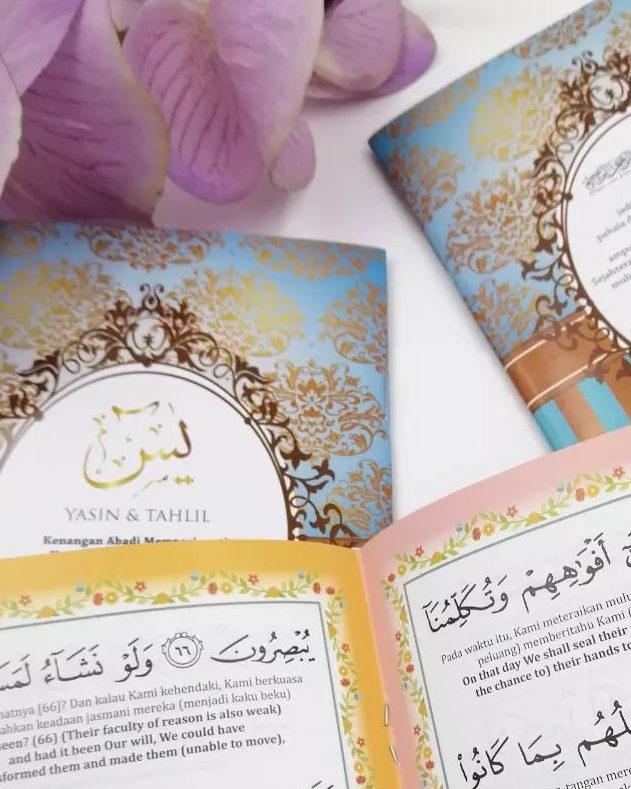 يس
YASIN & TAHLIL
Kenangan Abadi
pahala
Sejahtera
يُبْصِرُونَ ٦٦ وَلَوْ نَشَآءُ
[66]? Dan kalau Kami kehendaki, Kami berkuasa
keadaan jasmani mereka (menjadi kaku beku)
seen? (66) (Their faculty of reason is also weak)
and had it been Our will, We could have
them and made them (unable to move),
أَفْوَاهِهِمْ وَتُكَلِّمُنَا
Pada waktu itu, Kami meteraikan
peluang) memberitahu Kami
On that day We shall seal their
the chance to) their hands
بِمَا كَانُوا
tangan